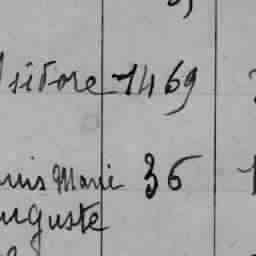 Isidore 1469
ouis Marie 36
Auguste